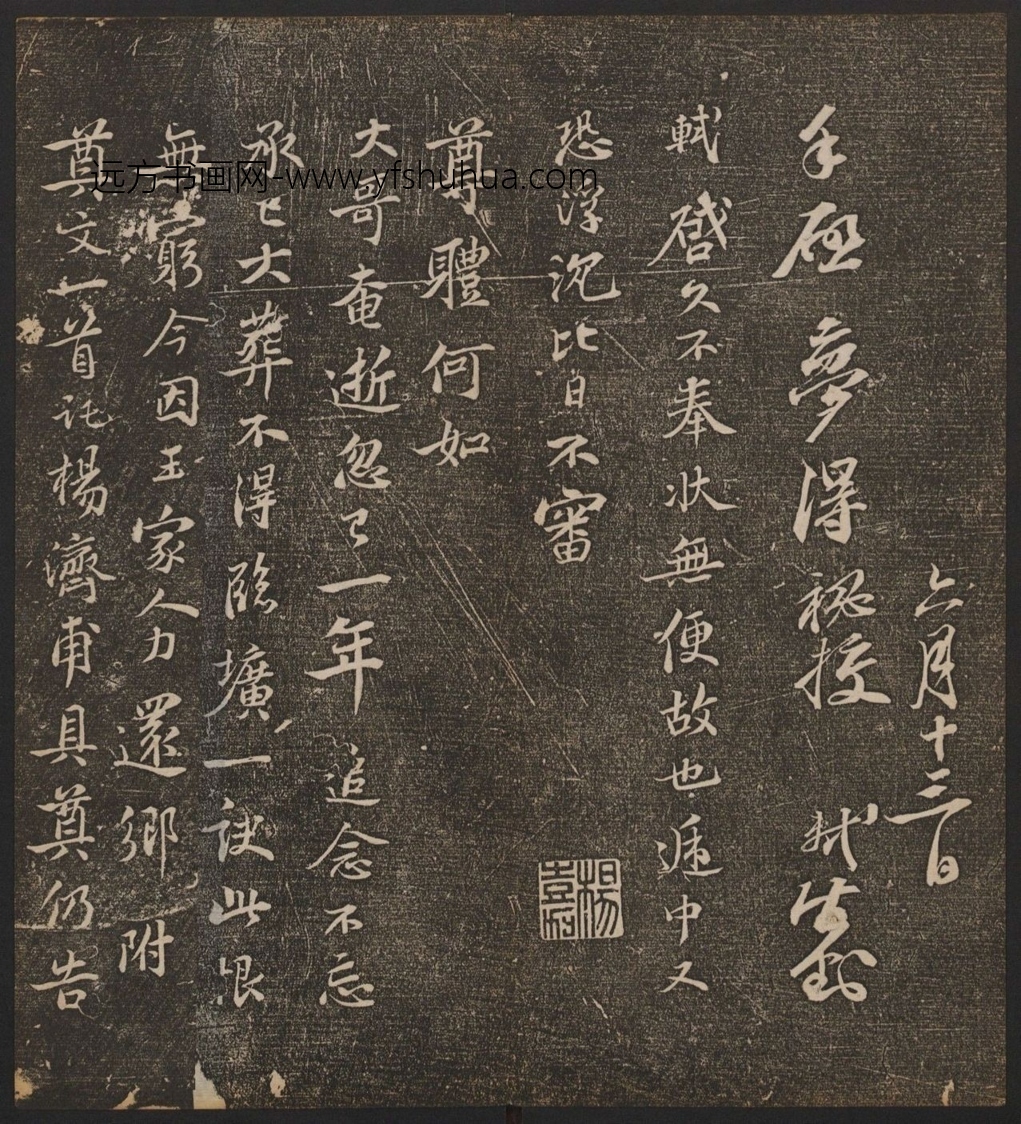 六月十三日
手啟夢得秘校 軾
軾啓久不奉狀無便故也遞中又
恐浮沉比日不審
尊體何如
大哥奄逝忽已一年追念不忘
承已大葬不得臨壙一訣此恨
無窮今因王家人力還鄉附
奠文一首託楊濟甫具奠仍告
远方书画网-www.yfshuhua.com